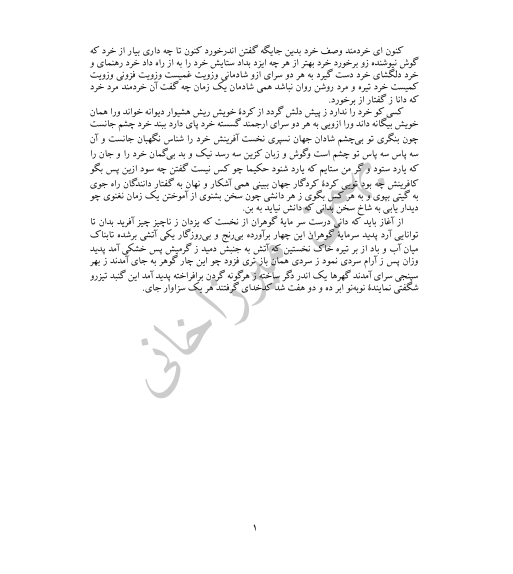 کنون ای خردمند وصف خرد بدین جایگه گفتن اندرخورد کنون تا چه داری بیار از خرد که
گوش نیوشنده زو برخورد خرد بهتر از هر چه ایزد بداد ستایش خرد را به از راه داد خرد رهنمای و
خرد دلگشای خرد دست گیرد به هر دو سرای ازو شادمانی وزویت غمیست وزویت فزونی وزویت
کمیست خرد تیره و مرد روشن روان نباشد همی شادمان یک زمان چه گفت آن خردمند مرد خرد
که دانا ز گفتار از برخورد.
کسی کو خرد را ندارد ز پیش دلش گردد از کردهٔ خویش ریش هشیوار دیوانه خواند ورا همان
خویش بیگانه داند ورا ازویی به هر دو سرای ارجمند گسسته خرد پای دارد ببند خرد چشم جانست
چون بنگری تو بی‌چشم شادان جهان نسپری نخست آفرینش خرد را شناس نگهبان جانست و آن
سه پاس سه پاس تو چشم است وگوش و زبان کزین سه رسد نیک و بد بی‌گمان خرد را و جان را
که یارد ستود و گر من ستایم که یارد شنود حکیما چو کس نیست گفتن چه سود ازین پس بگو
کافرینش چه بود تویی کردهٔ کردگار جهان ببینی همی آشکار و نهان به گفتار دانندگان راه جوی
به گیتی بپوی و به هر کس بگوی ز هر دانشی چون سخن بشنوی از آموختن یک زمان نغنوی چو
دیدار یابی به شاخ سخن بدانی که دانش نیاید به بن.
از آغاز باید که دانی درست سر مایهٔ گوهران از نخست که یزدان ز ناچیز چیز آفرید بدان تا
توانایی آرد پدید سرمایهٔ گوهران این چهار برآورده بی‌رنج و بی‌روزگار یکی آتشی برشده تابناک
میان آب و باد از بر تیره خاک نخستین که آتش به جنبش دمید ز گرمیش پس خشکی آمد پدید
وزان پس ز آرام سردی نمود ز سردی همان باز تری فزود چو این چار گوهر به جای آمدند ز بهر
سپنجی سرای آمدند گهرها یک اندر دگر ساخته ز هرگونه گردن برافراخته پدید آمد این گنبد تیزرو
شگفتی نمایندهٔ نوبه‌نو ابر ده و دو هفت شد کدخدای گرفتند هر یک سزاوار جای.
۱